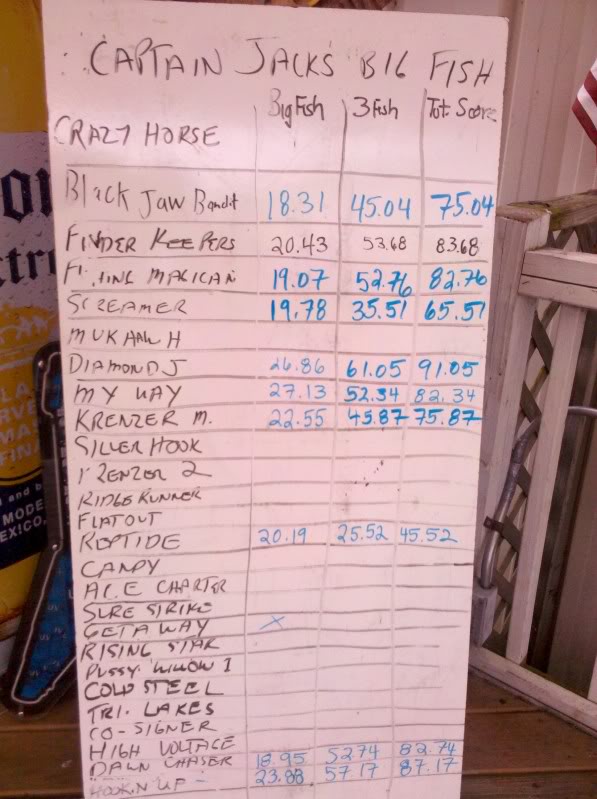 CAPTAIN JACKS BIG FISH
Big Fish 3 Fish Tot. Score
CRAZY HORSE
Black Jaw Bandit 18.31 45.04 75.04
FINDER KEEPERS 20.43 53.68 83.68
MAGICAN 19.07 52.76 82.76
SCREAMER 19.78 35.51 65.51
MUKANN H
DIAMOND J 26.86 61.05 91.05
MY WAY 27.13 52.34 82.34
KRENZER M. 22.55 45.87 75.87
SILVER HOOK
KRENZER 2
RIDGE RUNNER
FLATOUT
REPTIDE 20.19 25.52 45.52
CANDY
ACE CHARTER
SURE STRIKE
GETAWAY X
RISING STAR
PUSSY WILLOW I
COLD STEEL
TRI. LAKES
CO-SIGNER
HIGH VOLTAGE
DAWN CHASER 18.95 52.74 82.74
HOOKN UP - 23.88 57.17 87.17
and b
MODE
EXICO,